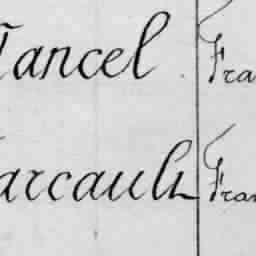 Tancel Fra
arcault Fran